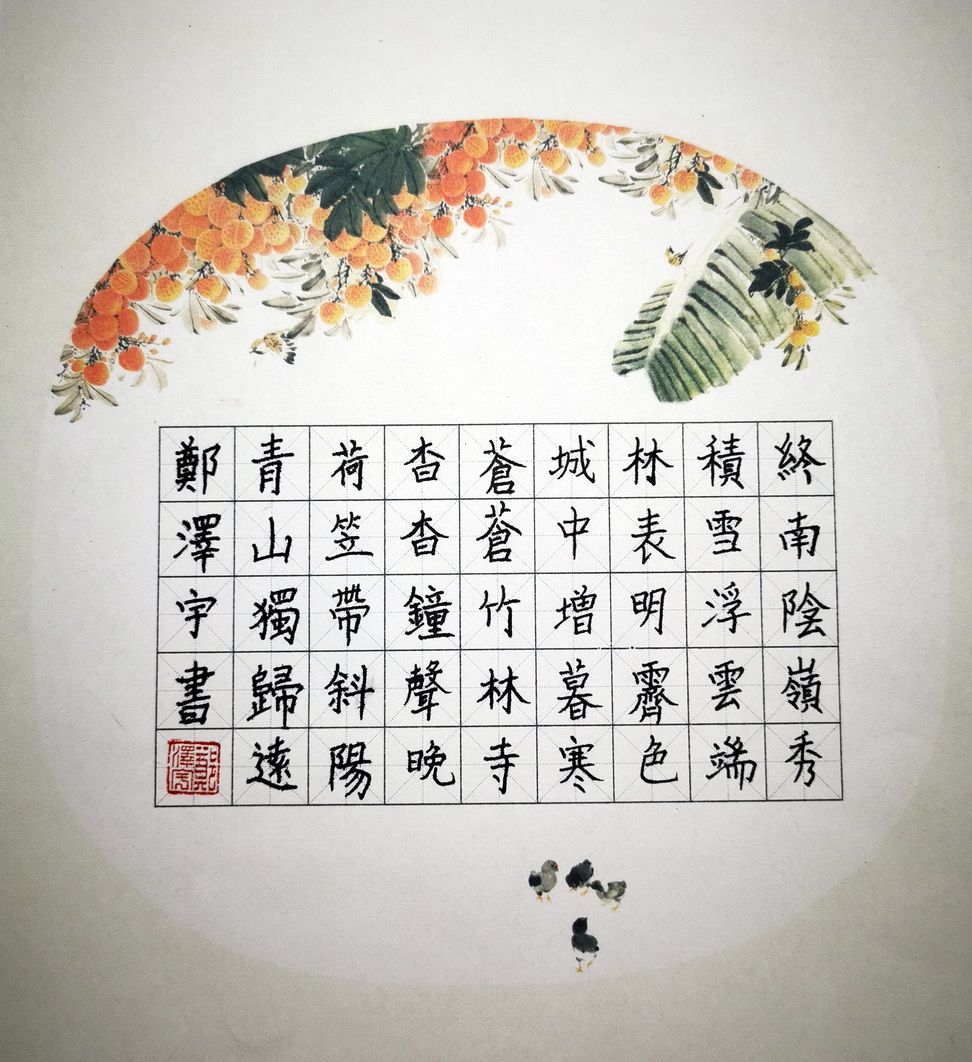 終南陰嶺秀
積雪浮雲端
林表明霽色
城中增暮寒
蒼蒼竹林寺
杳杳鐘聲晚
荷笠帶斜陽
青山獨歸遠
鄭澤宇書